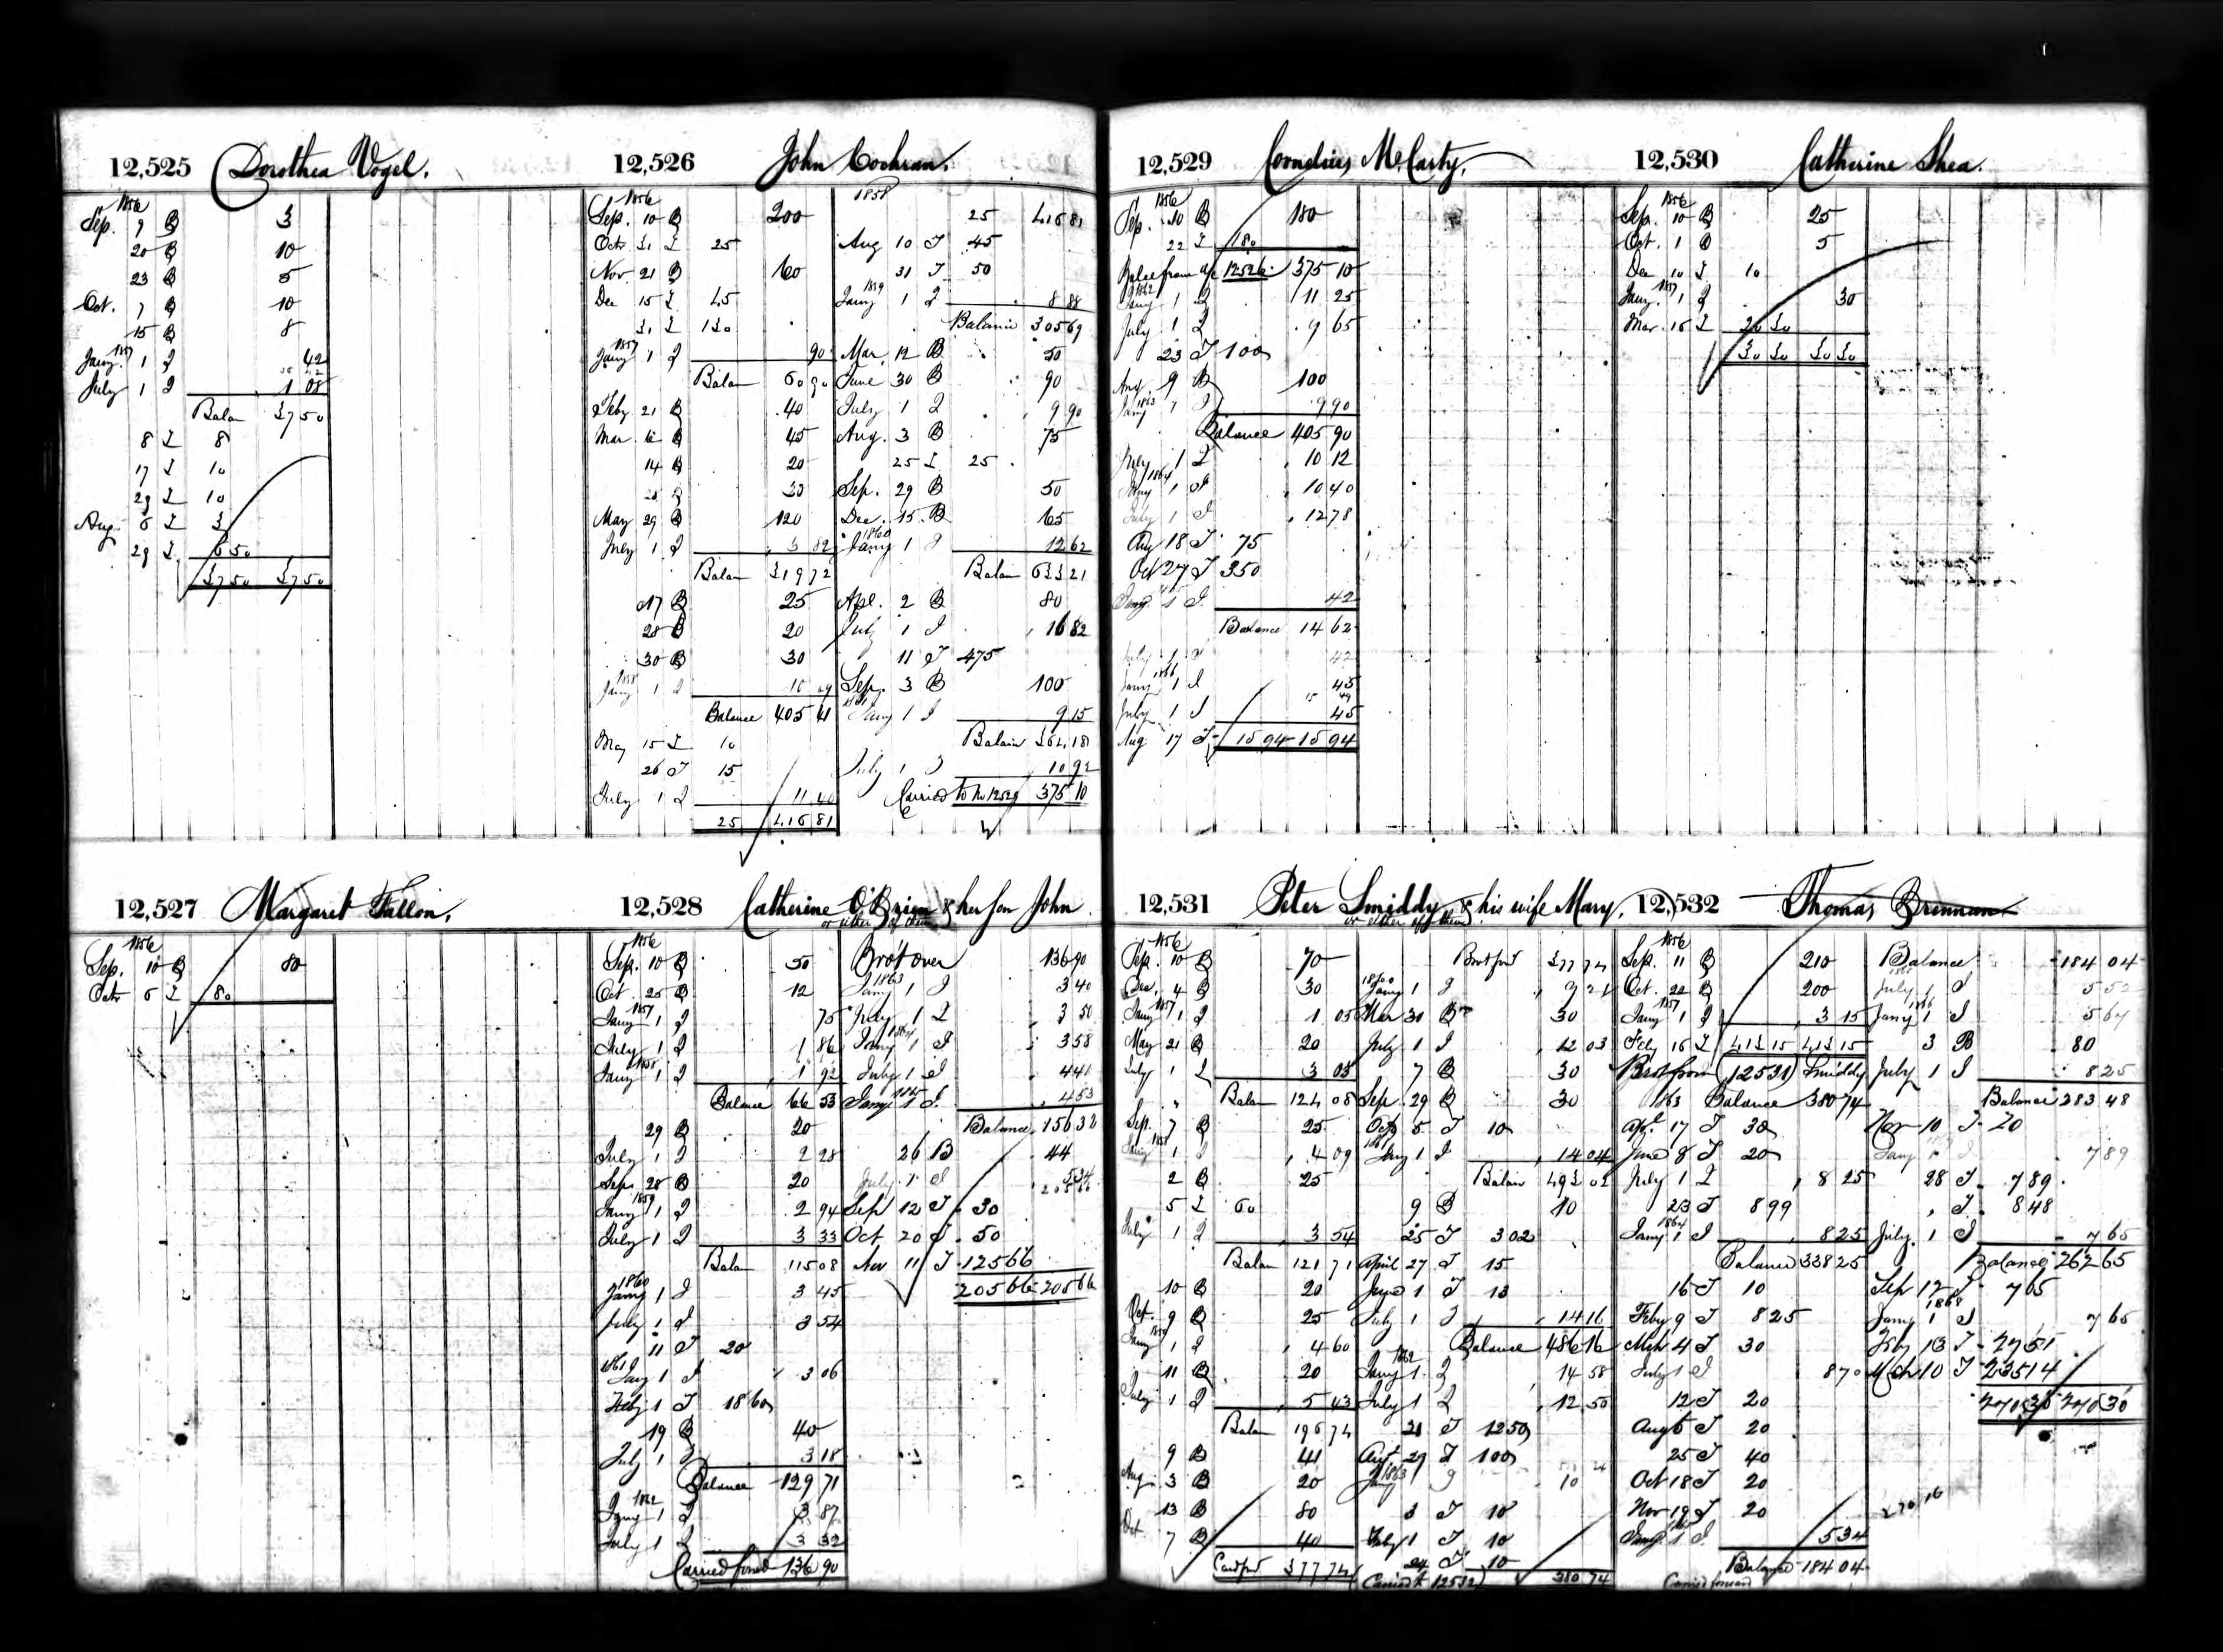 12,525 Dorothea Vogel.
1856
Sep. 9 B 3
20 B 10
23 B 5
Oct. 7 B 10
15 B 8
1857
Jany. 1 I 42
July 1 I 1 08
Balan 37 50
8 I 8
17 I 10
29 I 10
Aug. 5 I 3
29 I 6 50
37 50 37 50
12,526 John Cochran.
1856
Sep. 10 B 200
Oct. 31 I 25
Nov. 21 B 60
Dec 15 I 45
31 I 130
1857
Jany 1 I 90
Balan 60 90
Feby. 21 B 40
Mar. 6 B 45
14 B 20
B 30
May 29 B 120
July 1 I 3 82
Balan 319 72
17 B 25
28 B 20
30 B 30
1858
Jany 1 I 10 69
Balance 405 41
May 15 I 10
26 T 15
July 1 I 11 40
25 416 81
1858
25 416 81
Aug 10 T 45
31 T 50
1859
Jany 1 I 8 88
Balance 305 69
Mar. 12 B 50
June 30 B 90
July 1 I 9 90
Aug. 3 B 75
25 I 25
Sep. 29 B 50
Dec. 15 B 65
1860
Jany 1 I 12 62
Balan 633 21
Apl. 2 B 80
July 1 I 16 82
11 T 475
Sep. 3 B 100
1861
Jany 1 I 9 15
Balance 364 18
July 1 I 10 92
Carried to No 12529 375 10
12,529 Cornelius McCarty.
1856
Sep. 10 B 180
22 I 180
Balce from a/c 12526 375 10
1862
Jany 1 I 11 25
July 1 I 9 65
23 T 100
Aug. 9 B 100
1863
Jany 1 I 9 90
Balance 405 90
July 1 I 10 12
1864
Jany 1 I 10 40
July 1 I 12 78
Aug 18 T 75
Oct 27 T 350
Jany. 1 I 42
Balance 14 62
July 1 I 42
1866
Jany 1 I 45
July 1 I 45
Aug 17 T 15 94 15 94
12,530 Catherine Shea.
1856
Sep. 10 B 25
Oct. 1 B 5
Dec 10 I 10
1857
Jany. 1 I 30
Mar. 16 I 20 30
30 30 30 30
12,527 Margaret Fallon.
1856
Sep. 10 B 80
Octr 6 I 80
12,528 Catherine O'Brien & her Son John.
or either of them
1856
Sep. 10 B 50
Oct. 25 B 12
1857
Jany 1 I 75
July 1 I 1 86
1858
Jany 1 I 1 92
Balance 66 53
29 B 20
July 1 I 2 28
Sep. 28 B 20
1859
Jany 1 I 2 94
July 1 I 3 33
Balan 115 08
1860
Jany 1 I 3 45
July 1 I 3 54
11 T 20
1861
Jany 1 I 3 06
Feby 1 T 18 60
19 B 40
July 1 I 3 18
Balance 129 71
1862
Jany 1 I 3 87
July 1 I 3 32
Carried forwd 136 90
Brot over 136 90
1863
Jany 1 I 3 40
July 1 I 3 50
1864
Jany 1 I 3 58
July 1 I 4 41
1865
Jany 1 I 4 53
Balance 156 32
26 B 44
July 1 I 5 34
205 66
Sep 12 T 30
Oct 20 T 50
Nov 11 T 125 66
205 66 205 66
12,531 Peter Smiddy & his wife Mary.
or either of them
1856
Sep. 10 B 70
Dec. 4 B 30
1857
Jany 1 I 1 05
May 21 B 20
July 1 I 3 03
Balan 124 08
Sep. 7 B 25
1858
Jany 1 I 4 09
2 B 25
5 I 60
July 1 I 3 54
Balan 121 71
10 B 20
Oct. 9 B 25
1859
Jany 1 I 4 60
11 B 20
July 1 I 5 43
Balan 196 74
9 B 41
Aug. 3 B 20
13 B 80
Oct 7 B 40
Card ford 377 74
Brot ford 377 74
1860
Jany 1 I 9 21
Mar 30 B 30
July 1 I 12 03
7 B 30
Sep. 29 B 30
Oct 5 T 10
1861
Jany 1 I 14 04
Balan 493 02
9 B 10
25 T 302
April 27 T 15
June 1 T 13
July 1 I 14 16
Balance 486 16
1862
Jany 1 I 14 58
July 1 I 12 50
21 T 12 50
Aug. 29 T 100
1863
Jany 1 I 10
3 T 10
Feby 1 T 10
24 T 10
Carried to 12532 380 74
12,532 Thomas Brennan
1856
Sep. 11 B 210
Oct. 22 B 200
1857
Jany 1 I 3 15
Feby 16 I 413 15 413 15
Brot from (12531) Smiddy
1863 Balance 380 74
Apl. 17 T 30
June 8 T 20
July 1 I 8 25
23 T 8 99
1864
Jany 1 I 8 25
Balance 338 25
16 T 10
Feby 9 T 8 25
Mch 4 T 30
July 1 I 8 70
12 T 20
Aug 5 T 20
25 T 40
Oct 18 T 20
Nov 19 T 20
Jany 1 I 5 34
Balance 184 04
Carried forward
Balance 184 04
July 1 I 5 52
1866
Jany 1 I 5 67
3 B 80
July 1 I 8 25
Balance 283 48
Nov 10 T 20
Jany 1 I 7 89
28 T 7 89
T 8 48
July. 1 I 7 65
Balance 262 65
Sep 12 T 7 65
1868
Jany 1 I 7 65
Feby 13 T 27 51
Mch 10 T 235 14
270 30 270 30
270 16